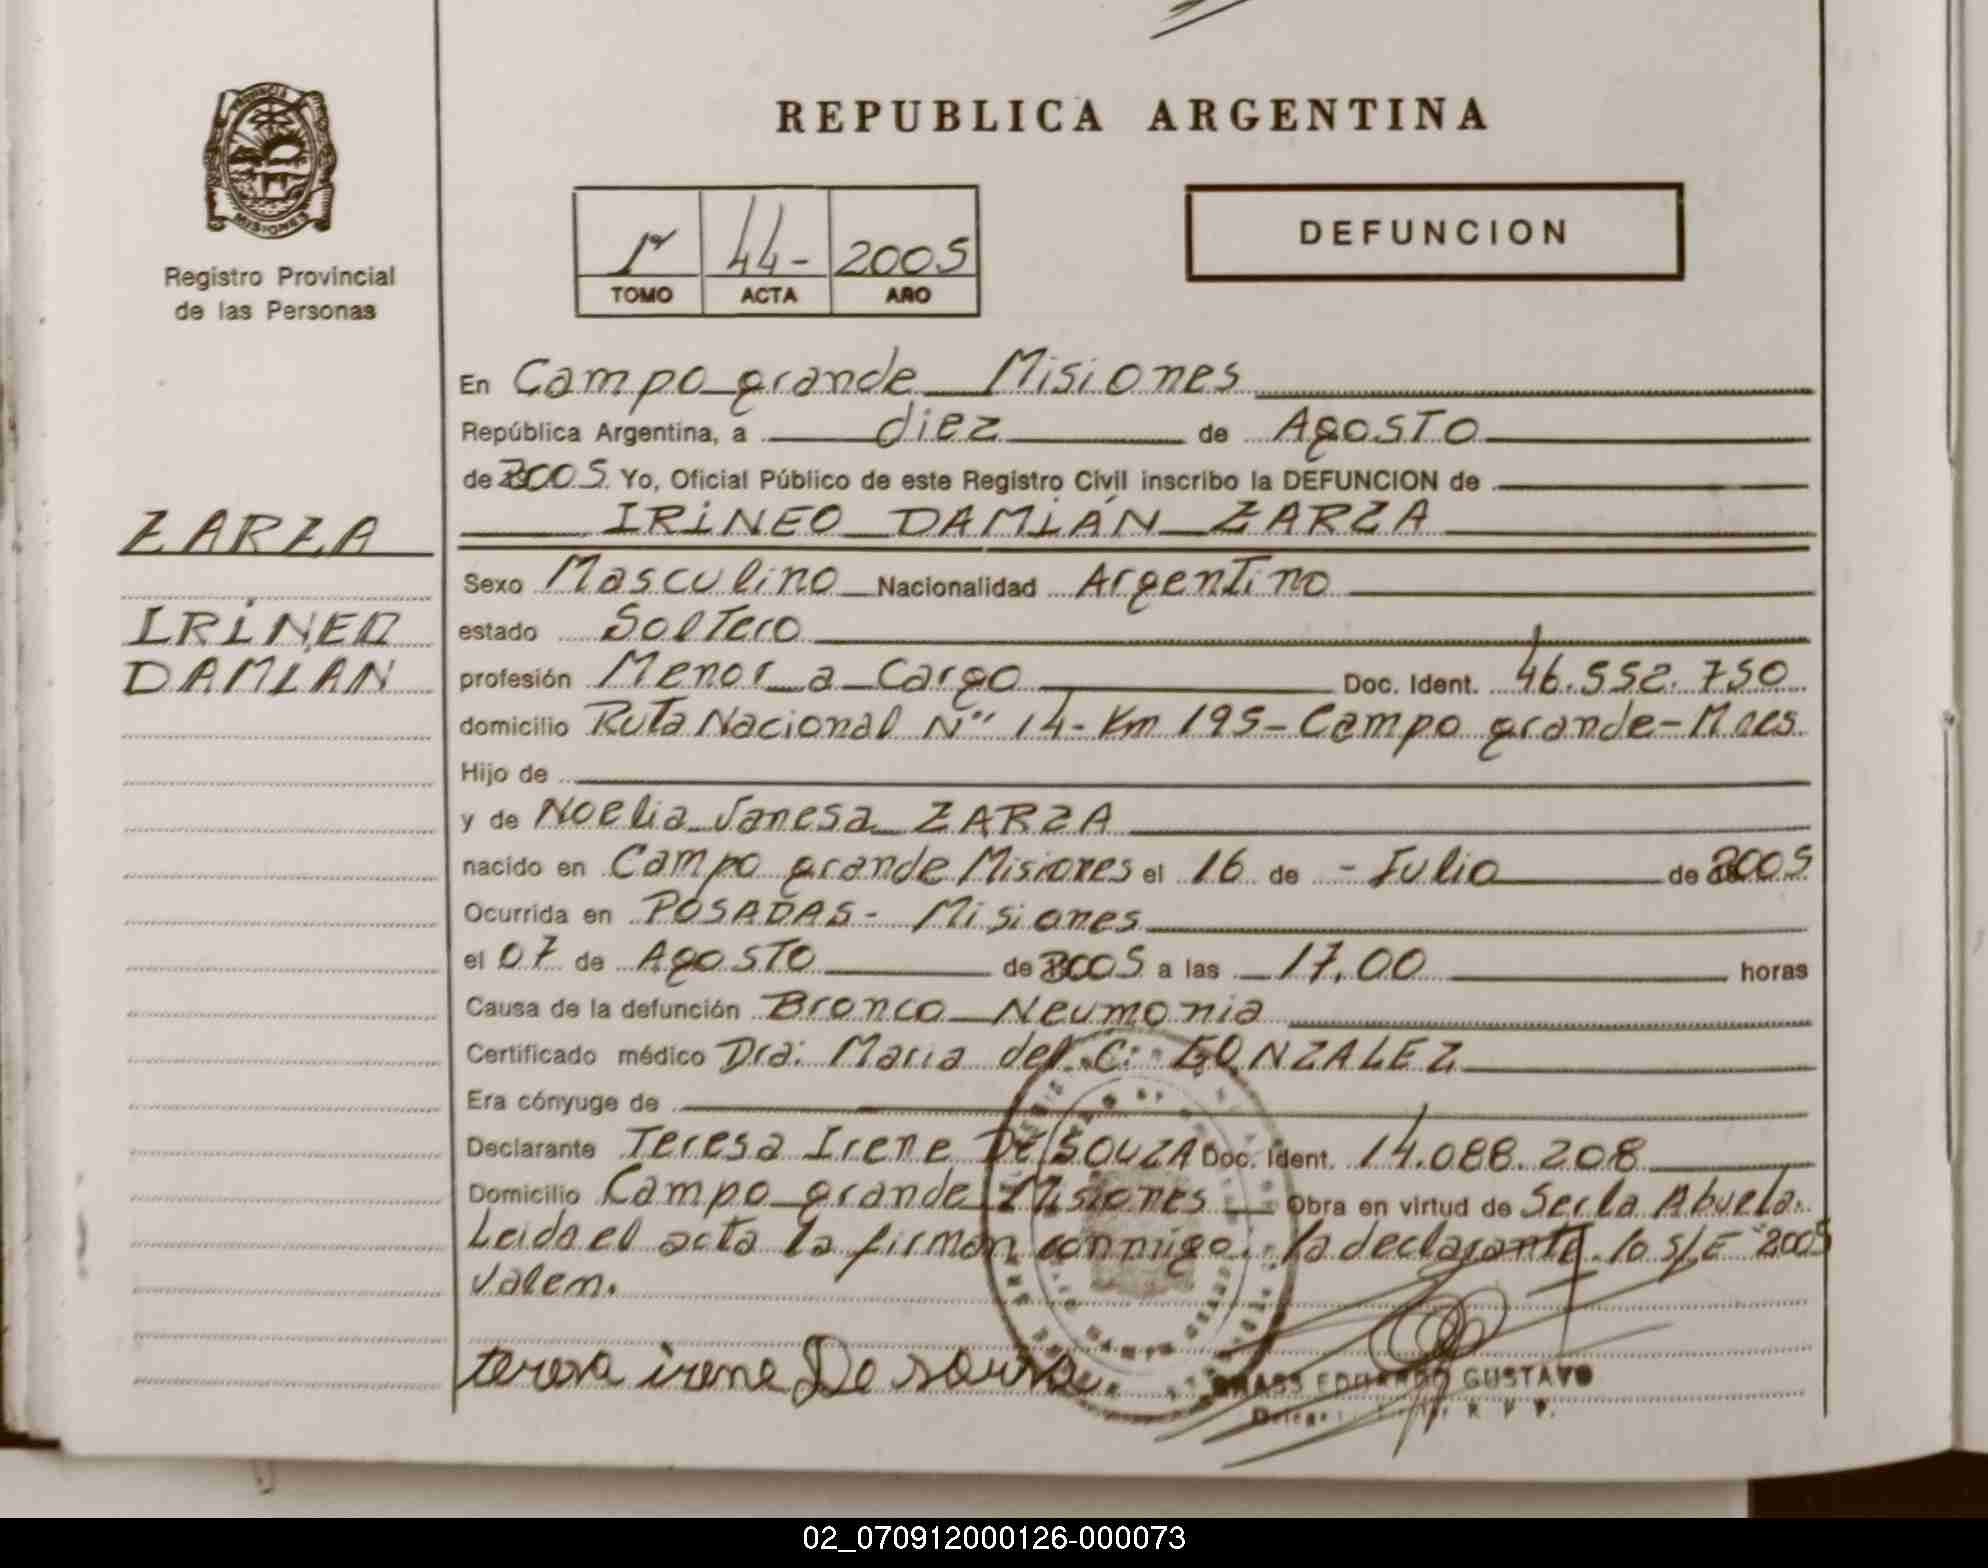 REPUBLICA ARGENTINA
PROVINCIA
MISIONES
Registro Provincial
de las Personas
1º 44- 2005
TOMO ACTA AÑO
DEFUNCION
En Campo grande Misiones
República Argentina, a diez de Agosto
de 2005 Yo, Oficial Público de este Registro Civil inscribo la DEFUNCION de
IRINEO DAMIÁN ZARZA
ZARZA
IRINEO
DAMIÁN
Sexo Masculino Nacionalidad Argentino
estado Soltero
profesión Menor a Cargo Doc. Ident. 46.552.750
domicilio Ruta Nacional Nº 14- Km 195- Campo grande- Mnes.
Hijo de
y de Noelia Vanesa ZARZA
nacido en Campo grande Misiones el 16 de - Julio de 2005
Ocurrida en POSADAS- Misiones
el 07 de Agosto de 2005 a las 17,00 horas
Causa de la defunción Bronco Neumonia
Certificado médico Dra: Maria del C: GONZALEZ
Era cónyuge de
Declarante Teresa Irene De SOUZA Doc. Ident. 14.088.208
Domicilio Campo grande Misiones Obra en virtud de Ser la Abuela.
Leida el acta la firman conmigo. la declarante. lo S/E "2005
Valen.
teresa irene De souza
EDUARDO GUSTAVO
R P P.
02_070912000126-000073